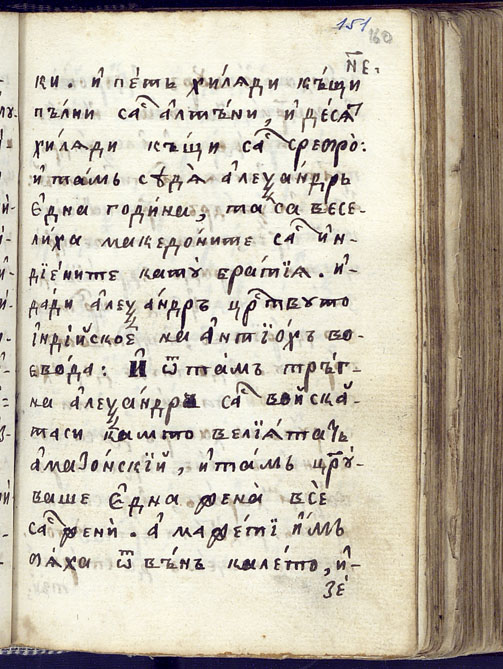 151
160
н҃е.
ки. и҆ пе́ть хилѧди кꙋ́щи
пъ́лни саⷭ҇ а҆лтъ́ни, и҆ де́сѧⷮ
хилѧ́ди кꙋ́щи саⷭ҇ сребро̀:
и҆ та́мъ сѣдѧ̀ а҆леѯа́ндръ
є҆дна годи́на, та̀ са весе-
ли́ха македо́ните саⷭ҇ и҆н-
дїе́ните катꙋ̀ бра́тїѧ. и҆-
да́ди а҆леѯа́ндръ црⷭ҇твото
і҆ндїйское҆ на а҆нтїо́хъ во-
єво́да: И҆ ѿта́мъ тръ́г-
на а҆леѯа́ндръ саⷭ҇ войска̀-
таси ка́мто велїѧ́та
а҆мазо́нскїй, и҆ та́мъ црⷭ҇ꙋ́-
ваше є҆дна жена̀ всѐ
саⷭ҇ женѝ. а҆ маже́тї и҆́мъ
бѧ́ха ѿ въ́нъ кале́то, и҆-
зе́